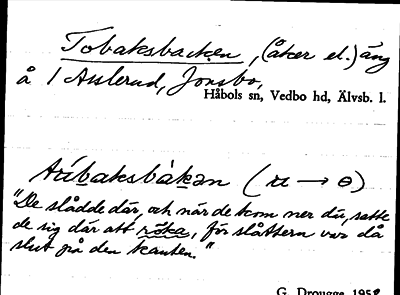 Tobaksbacken, (åker el.) äng
å 1 Asslerud, Jonsbo,
Håbols sn, Vedbo hd, Älvsb. l.
"De slådde där, och när de kom ner du, satte
de sig där att röka, för slåttern var då
slut på den kanten."
G. Drougge 1958